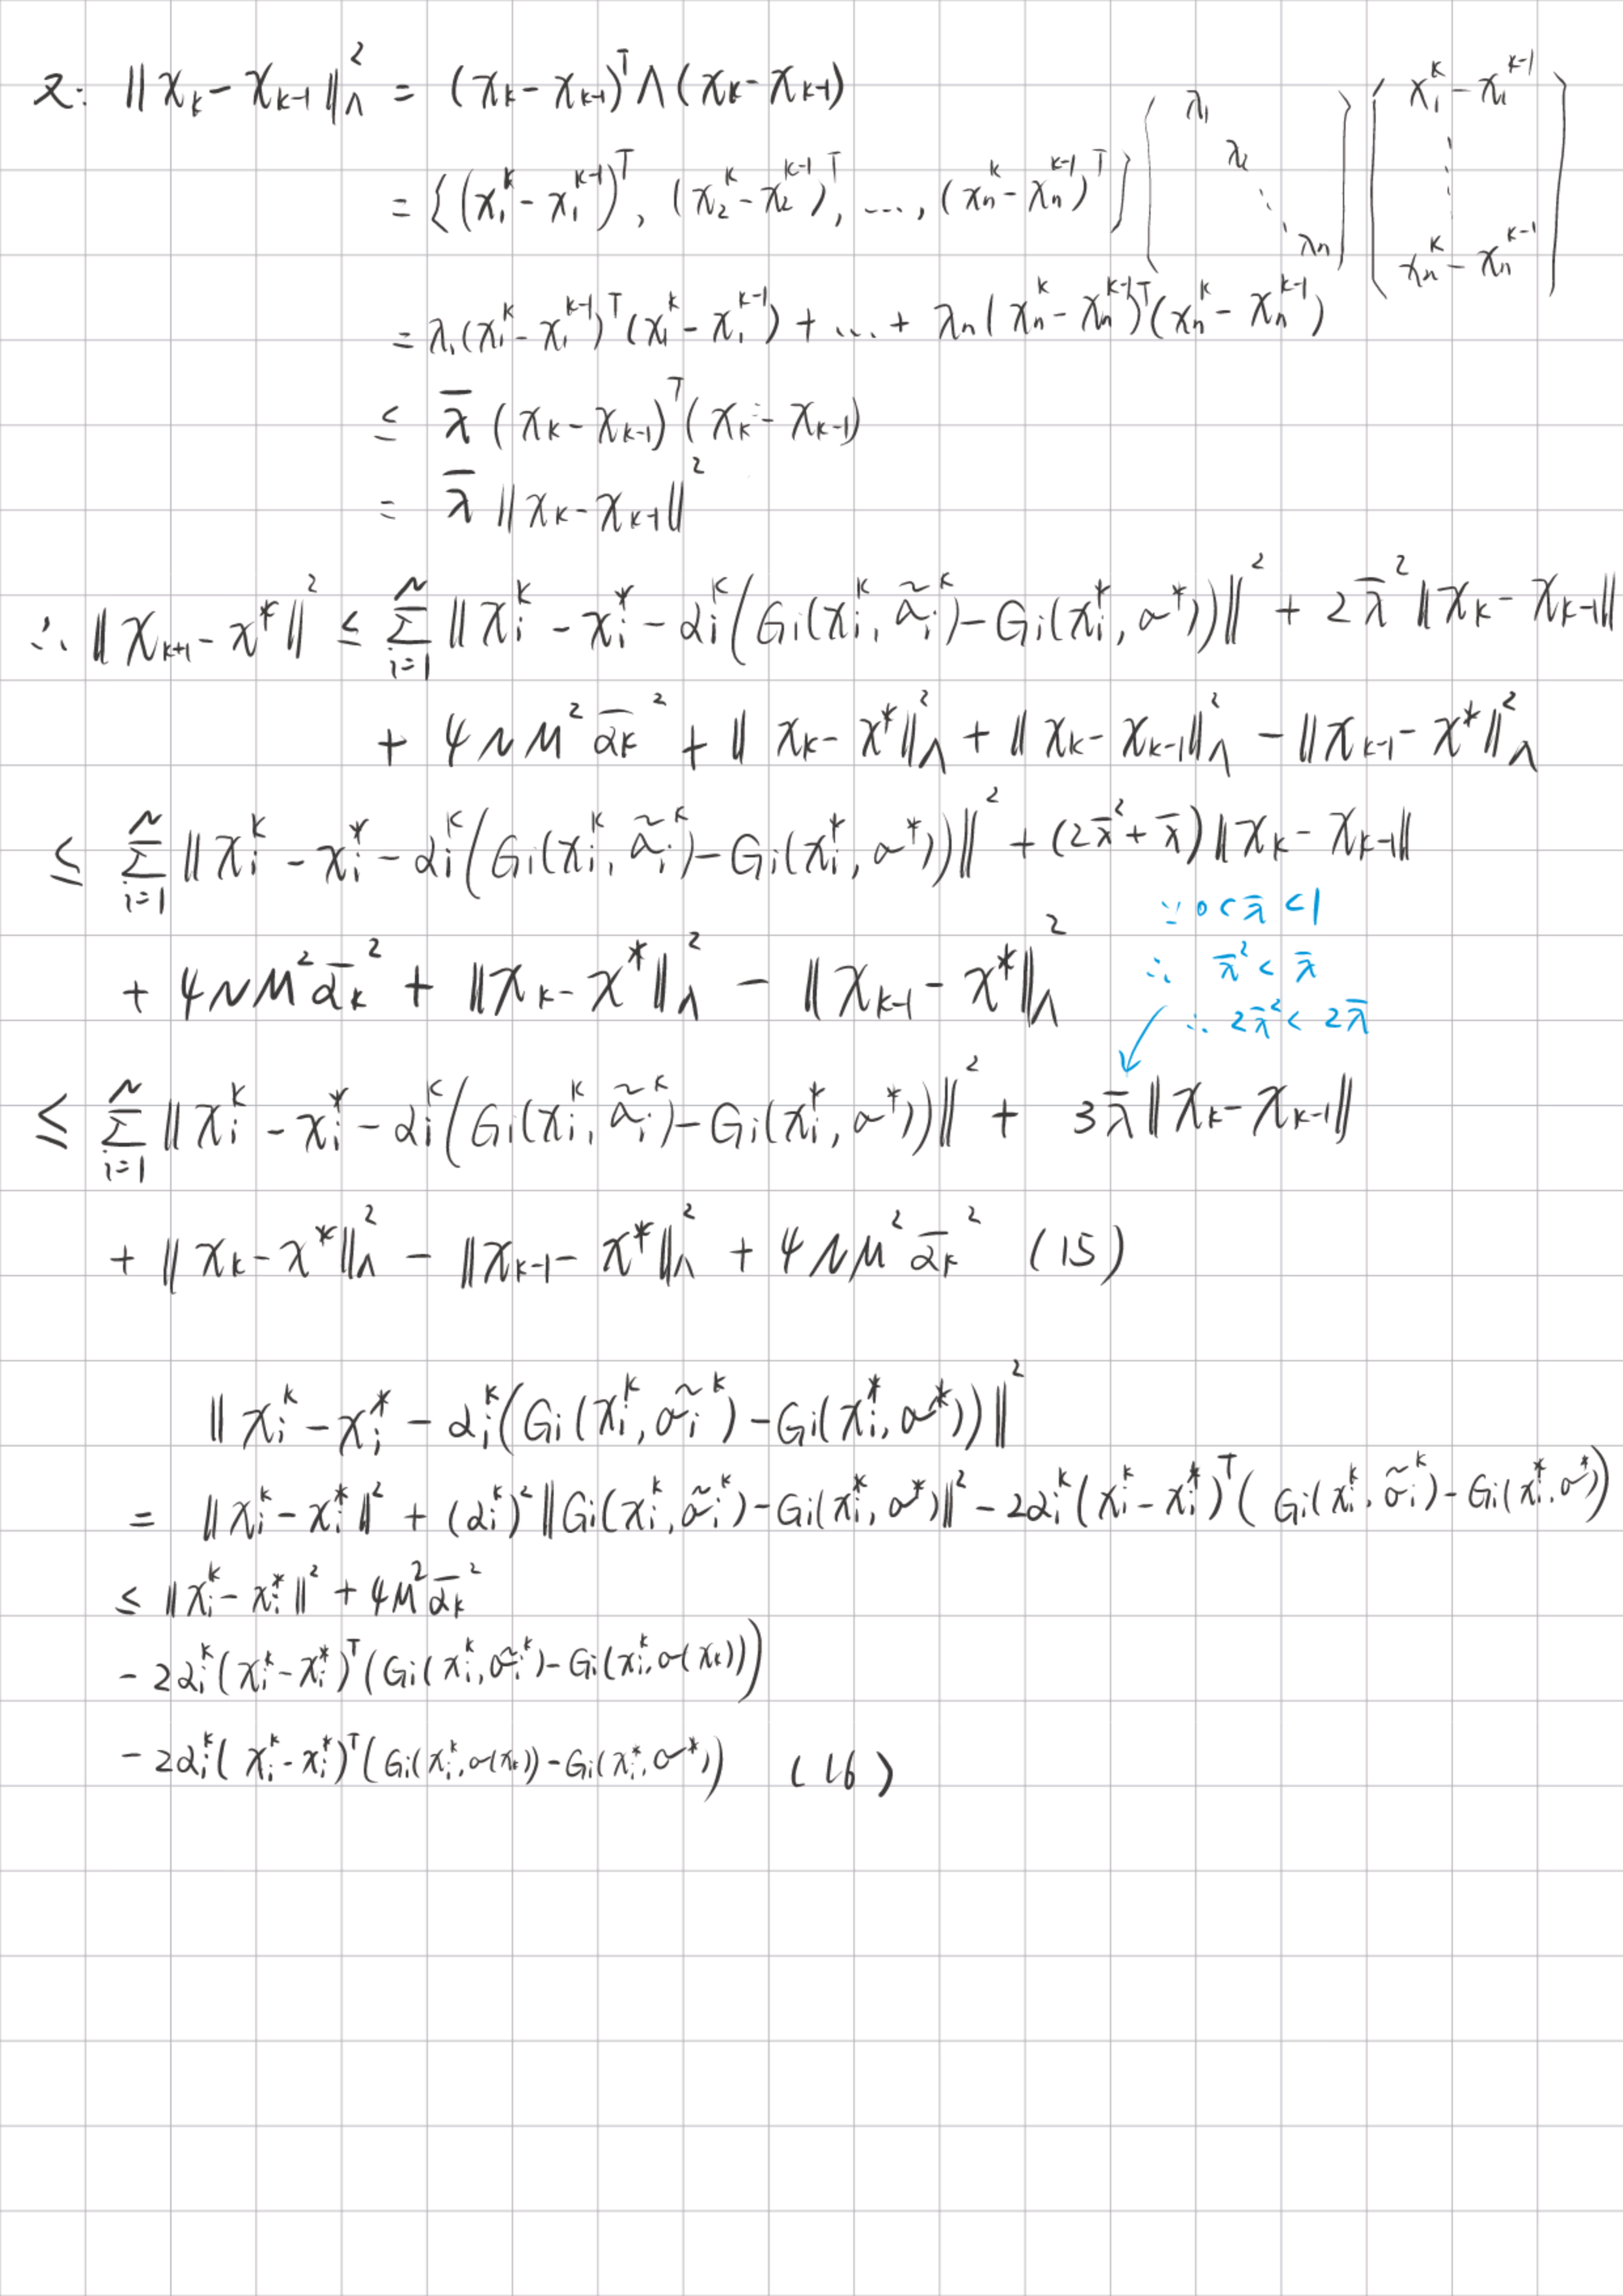 又: ‖x_k - x_{k-1}‖²_Λ = (x_k - x_{k-1})^T Λ (x_k - x_{k-1})
= {(x_1^k - x_1^{k-1})^T, (x_2^k - x_2^{k-1})^T, ..., (x_n^k - x_n^{k-1})^T} [λ_1 λ_2 ⋱ λ_n] [x_1^k - x_1^{k-1} ⋮ x_n^k - x_n^{k-1}]
= λ_1(x_1^k - x_1^{k-1})^T (x_1^k - x_1^{k-1}) + ... + λ_n(x_n^k - x_n^{k-1})^T (x_n^k - x_n^{k-1})
≤ λ̄ (x_k - x_{k-1})^T (x_k - x_{k-1})
= λ̄ ‖x_k - x_{k-1}‖²
∴ ‖x_{k+1} - x*‖² ≤ Σ_{i=1}^N ‖x_i^k - x_i^* - α_i^k (G_i(x_i^k, σ̃_i^k) - G_i(x_i^*, σ*))‖² + 2λ̄² ‖x_k - x_{k-1}‖
+ 4NM² ᾱ_k² + ‖x_k - x*‖²_Λ + ‖x_k - x_{k-1}‖²_Λ - ‖x_{k-1} - x*‖²_Λ
≤ Σ_{i=1}^N ‖x_i^k - x_i^* - α_i^k (G_i(x_i^k, σ̃_i^k) - G_i(x_i^*, σ*))‖² + (2λ̄² + λ̄) ‖x_k - x_{k-1}‖
∵ 0 < λ̄ < 1
+ 4NM² ᾱ_k² + ‖x_k - x*‖²_Λ - ‖x_{k-1} - x*‖²_Λ
∴ λ̄² < λ̄
∴ 2λ̄² < 2λ̄
≤ Σ_{i=1}^N ‖x_i^k - x_i^* - α_i^k (G_i(x_i^k, σ̃_i^k) - G_i(x_i^*, σ*))‖² + 3λ̄ ‖x_k - x_{k-1}‖
+ ‖x_k - x*‖²_Λ - ‖x_{k-1} - x*‖²_Λ + 4NM² ᾱ_k² (15)
‖x_i^k - x_i^* - α_i^k (G_i(x_i^k, σ̃_i^k) - G_i(x_i^*, σ*))‖²
= ‖x_i^k - x_i^*‖² + (α_i^k)² ‖G_i(x_i^k, σ̃_i^k) - G_i(x_i^*, σ*)‖² - 2α_i^k (x_i^k - x_i^*)^T (G_i(x_i^k, σ̃_i^k) - G_i(x_i^*, σ*))
≤ ‖x_i^k - x_i^*‖² + 4M² ᾱ_k²
- 2α_i^k (x_i^k - x_i^*)^T (G_i(x_i^k, σ̃_i^k) - G_i(x_i^k, σ(x_k)))
- 2α_i^k (x_i^k - x_i^*)^T (G_i(x_i^k, σ(x_k)) - G_i(x_i^*, σ*)) (16)